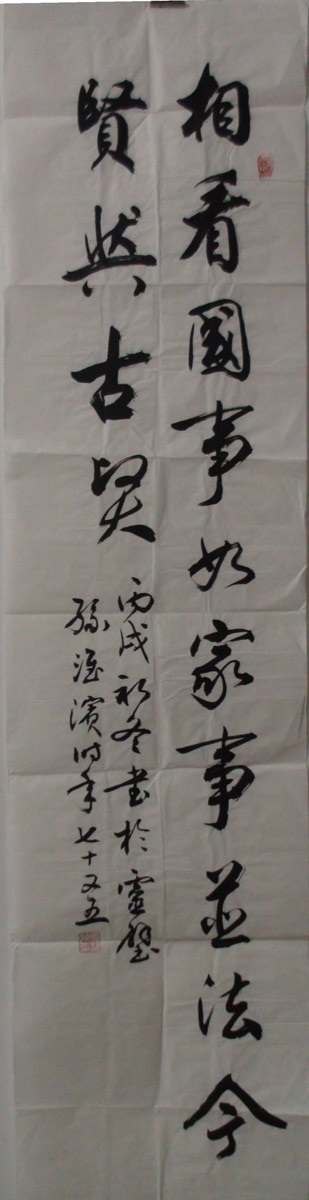 相看國事如家事並法今
賢與古賢
丙戌初冬書於靈璧
孫淮濱时年七十又五